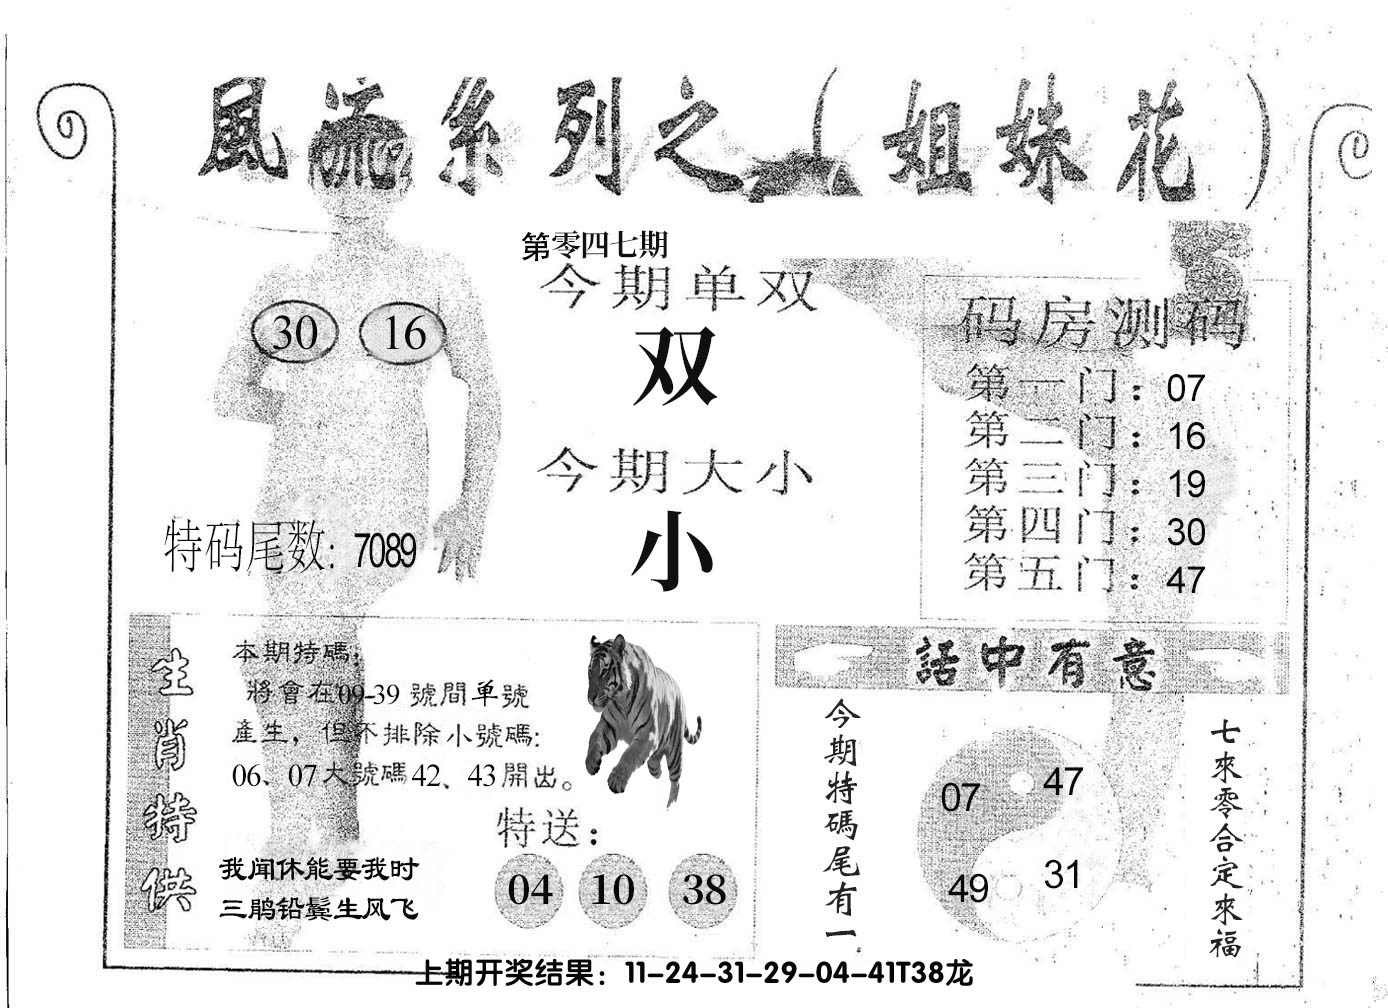 風流系列之（姐妹花）
第零四七期
今期单双
双
30 16
今期大小
小
特码尾数: 7089
码房测码
第一门：07
第二门：16
第三门：19
第四门：30
第五门：47
生肖特供
本期特碼，
將會在09-39 號間单號
產生，但不排除小號碼:
06、07大號碼42、43開出。
特送：
04 10 38
我闻休能要我时
三鹃铅鬓生风飞
話中有意
今期特碼尾有一
07 47
49 31
七來零合定來福
上期开奖结果：11-24-31-29-04-41T38龙